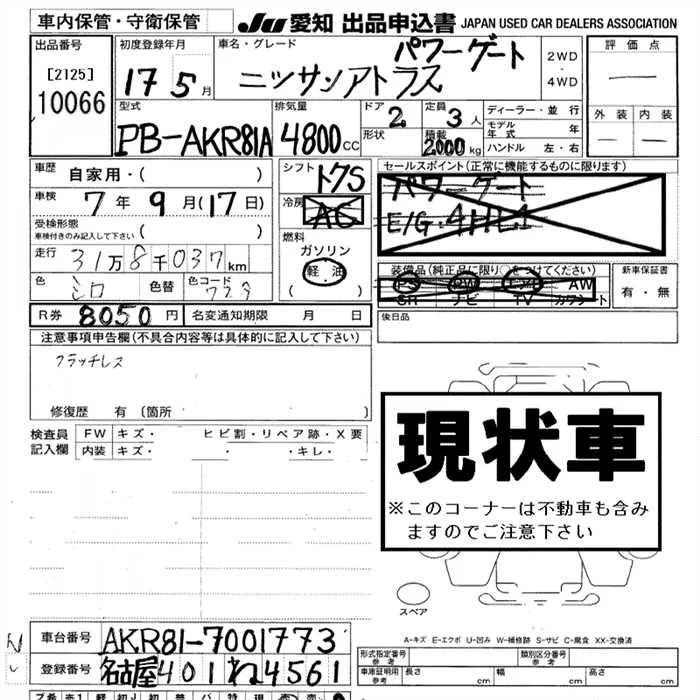 車内保管・守衛保管
JU 愛知 出品申込書 JAPAN USED CAR DEALERS ASSOCIATION
出品番号
[2125]
10066
初度登録年月
17 5月
車名・グレード
パワーゲート
ニッサンアトラス
2WD
・
4WD
評価点
外装 内装
型式
PB-AKR81A
排気量
4800cc
ドア 2
形状
定員 3人
積載 2000kg
ディーラー・並行
モデル年式 年
ハンドル 左・右
車歴 自家用・( )
車検 7年9月(17日)
受検形態
車検付きのみ記入して下さい ( )
走行 31万8千037km
色 シロ 色替 色コード
シフト
冷房 AC
燃料
ガソリン
軽油
( )
セールスポイント(正常に機能するものに限ります)
パワーゲート
E/G 4HL1
装備品(純正品に限り○をつけてください)
PS PW エアB AW
SR ナビ TV カワシート
新車保証書
有・無
R券 8050円 名変通知期限 月 日
後日品
注意事項申告欄(不具合内容等は具体的に記入して下さい)
クラッチレス
修復歴 有(箇所 )
検査員
記入欄
FW キズ・ ヒビ割・リペア跡・X要
内装 キズ・ ・キレ・
現状車
※このコーナーは不動車も含み
ますのでご注意下さい
スペア
A-キズ E-エクボ U-凹み W-補修跡 S-サビ C-腐食 XX-交換済
車台番号 AKR81-7001773
登録番号 名古屋401ね4561
形式指定番号
参考
類別区分番号
参考
車庫証明用
参考
長さ cm 幅 cm 高さ cm